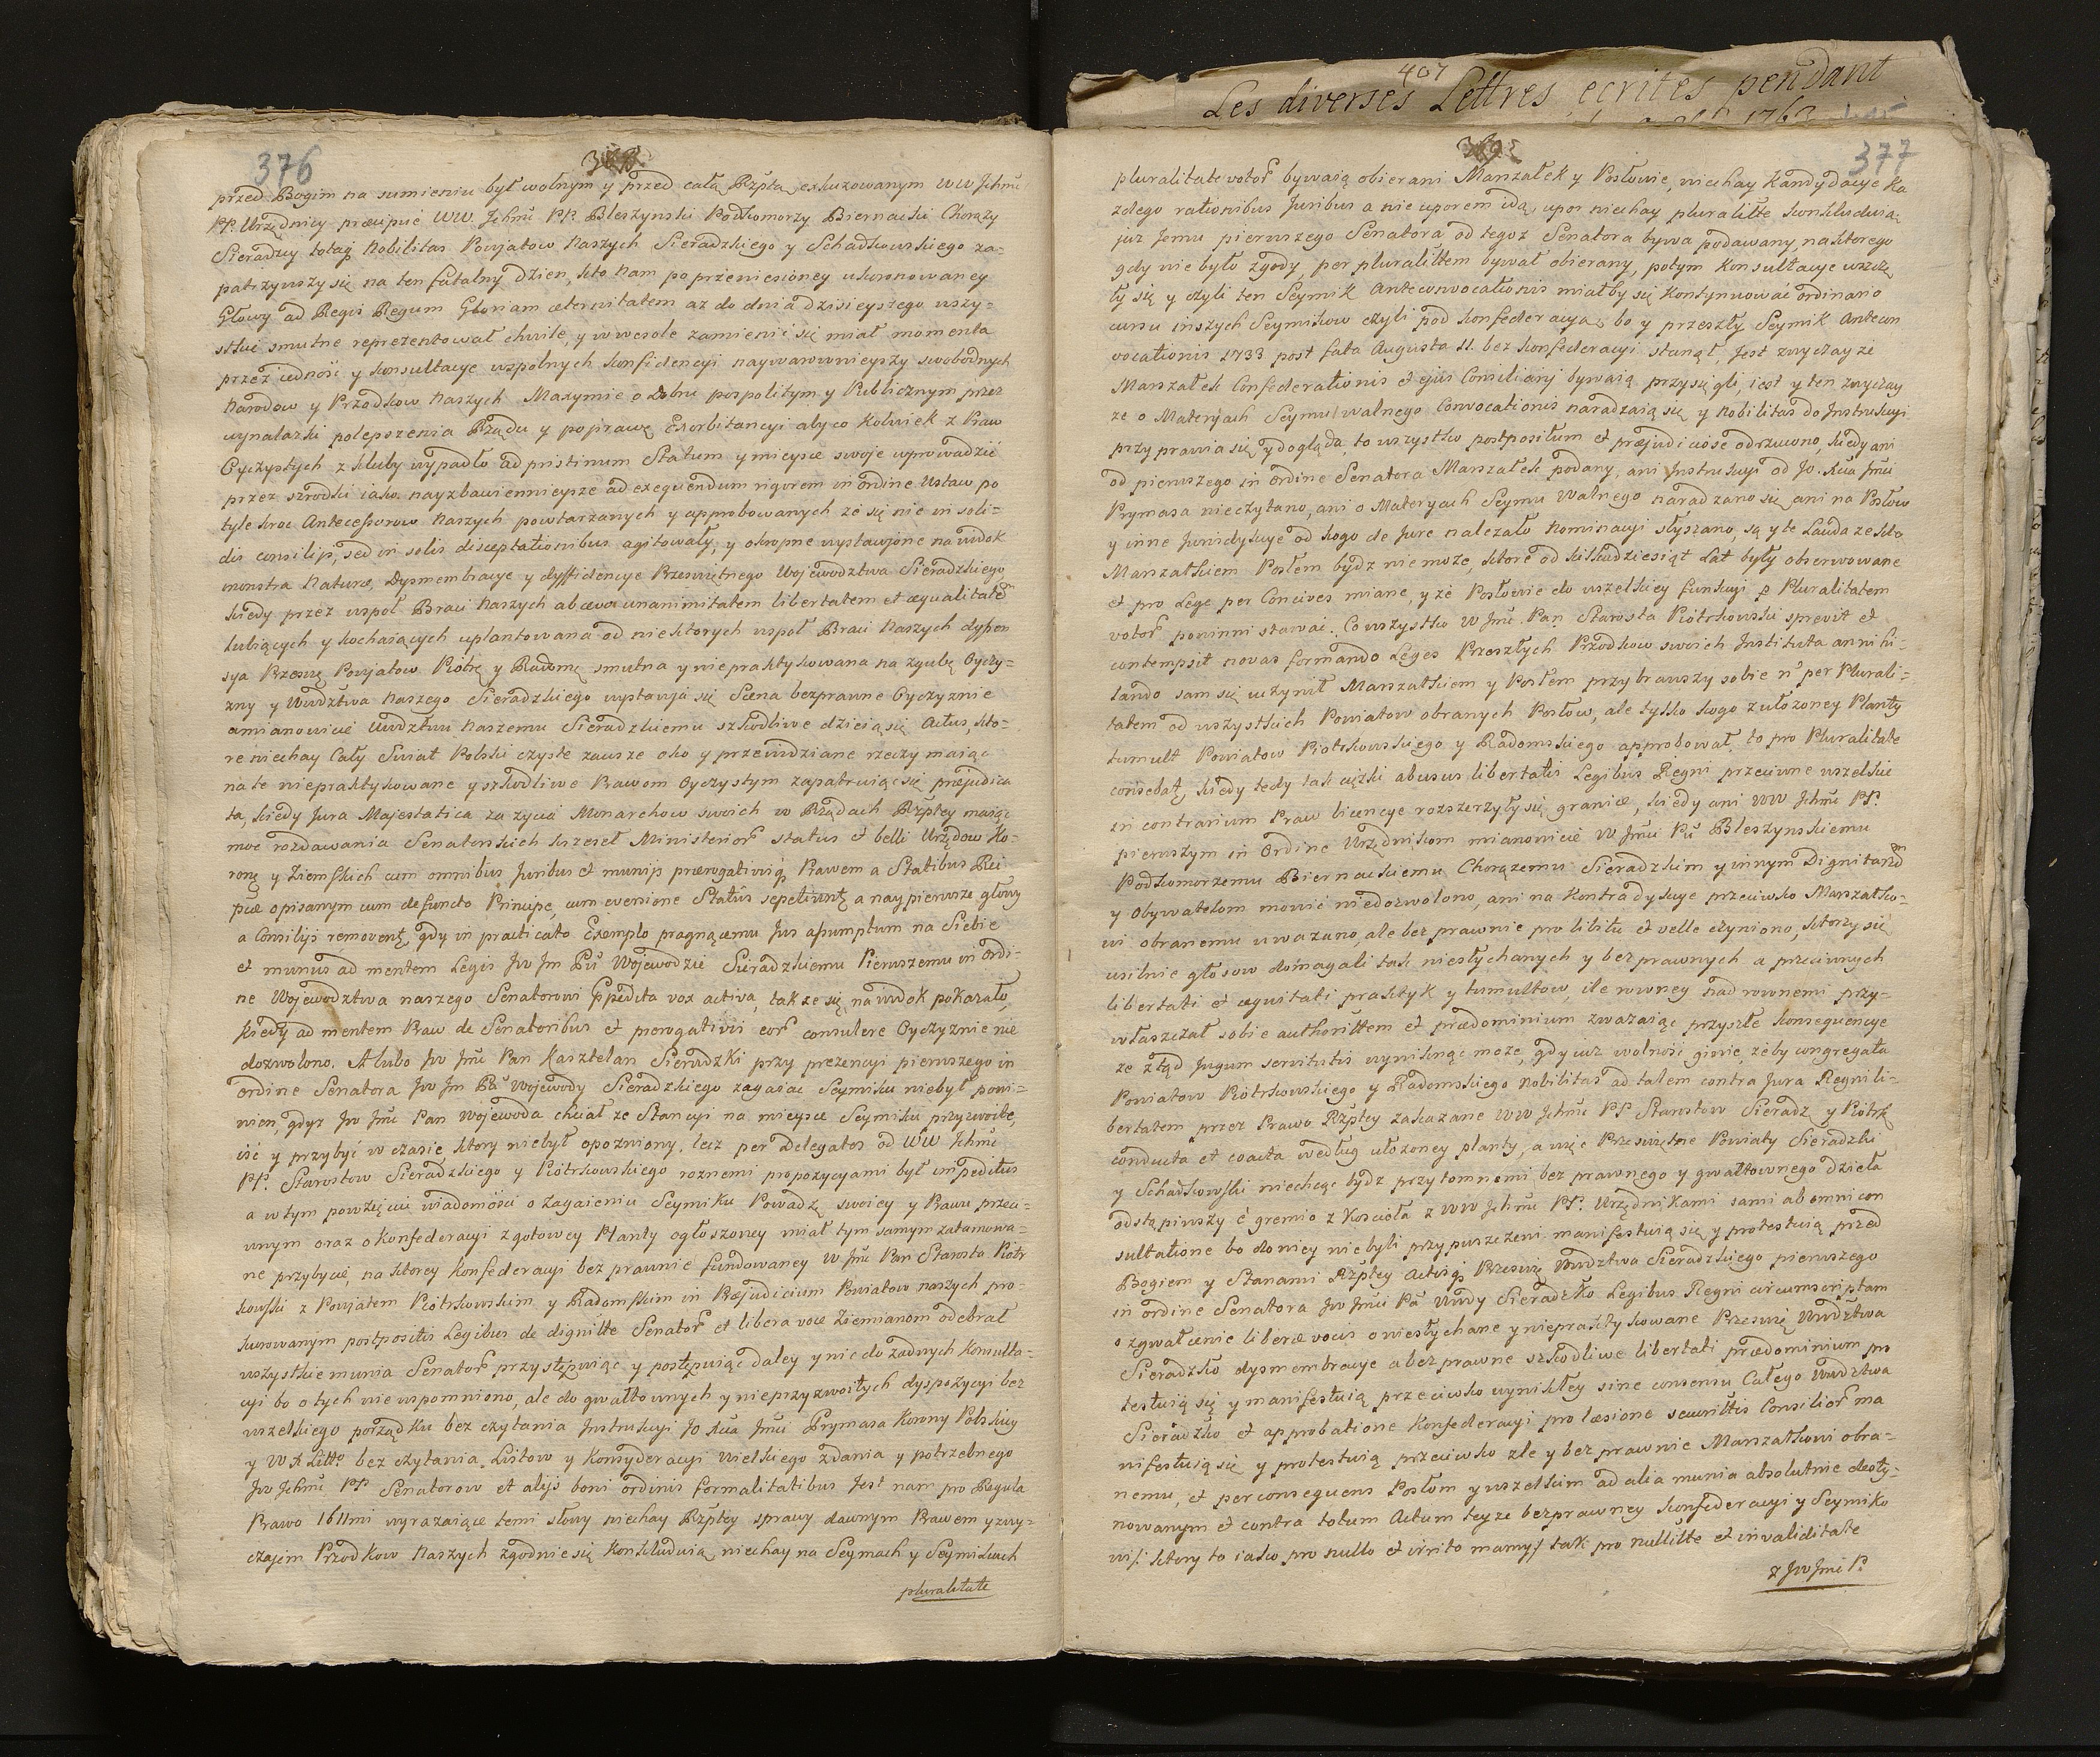 376
przed Bogim na sumieniu był wolnym y przed całą Rzpltą exkuzowanym WW Jchmć
PP. Urzędnicy præcipuè WW. Jchmć PP. Bleszynski Podkomorzy Biernacki Chorązy
Sieradzcy totaq nobilitas Powjatow Naszych Sieradzkiego y Schadkowskiego za-
patrzywszy się na ten fatalny dzien, kto Nam po przeniesioney ukoronowaney
Głowy ad Regis Regum Gloriam æternitatem az do dnia dzisieyszego wszy-
stkie smutne reprezentował chwile, y w wesołe zamienić się miał momenta
przez jedność y konsultacye wspolnych konfidencyi naywarownieyszy swobodnych
Narodow y Przodkow Naszych Maxymie o dobru pospolitym y Publicznym przez
wynalazki polepszenia Rządu y poprawę Exorbitancyi aby co kolwiek z Praw
Oyczystych z kluby wypadło ad pristinum Statum y mieysce swoje wprowadzić
przez szrodki iako nayzbawiennieysze ad exequendum rigorem in ordine Ustaw po
tyle kroć Antecessorow Naszych powtarzanych y approbowanych ze się nie in soli-
dis consilijs, sed in solis disceptationibus agitowały, y okropne wystawione na widok
monstra Naturæ, Dysmembracye y dyffidencye Przeswiętnego Wojewodztwa Sieradzkiego
kiedy przez wspoł Braci Naszych ab ævo unanimitatem libertatem et æqualitatē
lubiących y kochaiących uplantowana od niektorych wspoł Braci Naszych dyspen
sya Przeswę Powjatow Piotrę y Radomę smutna y niepraktykowana na zgubę Oyczy-
zny y Wwdztwa Naszego Sieradzkiego wystawja się Scena bezprawne Oyczyznie
a mianowicie Wwdztwu Naszemu Sieradzkiemu szkodliwe dzieią się Actus, kto-
re niechay Cały Swiat Polski czyste zawsze oko y przewidziane rzeczy maiąc
na te niepraktykowane y szkodliwe Prawom Oyczystym zapatruiąc się præjudica
ta, kiedy Jura Majestatica za zycia Monarchow swoich w Rządach Rzpltey maiąc
moc rozdawania Senatorskich krzeseł Ministeriorū status et belli Urzędow Ko-
ronę y Ziemskich cum omnibus Juribus et munijs prærogativisq Prawem a Statibus Rei
pcæ opisanym cum defuncto Principe, cum evenione Statûs sepeliunt a naypierwsze głowy
a Consilijs removentę, gdy in practicato Exemplo pragnącemu Jus assumptum na Siebie
et munus ad mentem Legis Jw Jm Pū Wojewodzie Sieradzkiemu Pierwszemu in Ordi-
ne Wojewodztwa naszego Senatorowi præcīta vox activa, tak ze się na widok pokazało,
kiedy ad mentem Praw de Senatoribus et prerogativis eorū consulere Oyczyznie nie
dozwolono. A lubo Jw Jmć Pan Kasztelan Sieradzki przy prezencyi pierwszego in
ordine Senatora Jw Jm Pā Wojewody Sieradzkiego zagaiać Seymiku niebył powi-
nien, gdyz Jw Jmć Pan Wojewoda chciał ze Stancyi na mieysce Seymiku przyzwoite,
iść y przybyć w czasie ktory niebył opozniony, lecz per Delegatos od WW Jchmć
PP. Starostow Sieradzkiego y Piotrkowskiego roznemi propozycyami był impeditus
a wtym powzięcie wiadomości o Zagaieniu Seymiku Powadzę swoiey y Prawu przeci-
wnym oraz o Konfederacyi z gotowey Planty ogłoszoney miał tym samym zatamowa-
ne przybycie, na ktorey Konfederacyi bez prawnie fundowaney W Jmć Pan Starosta Piotr
kowski z Powjatem Piotrkowskim y Radomskim in Præjudicium Powiatow naszych pro-
kurowanym postpositis Legibus de dignitte Senatorū et libera voce Ziemianom odebrał
wszystkie munia Senatorū przystępuiąc y postępuiąc daley y nic do zadnych Konsulta-
cyi bo o tych nie wspomniono, ale do gwałtownych y nieprzyzwoitych dyspozycyi bez
wszelkiego porządku bez czytania Instrukcyi Jo Xcia Jmci Prymasa Korony Polskiey
y W X Litto bez czytania Listow y Konsyderacyi wielkiego zdania y potrzebnego
Jw Jchmć PP Senatorow et alijs boni ordinis formalitatibus Jest nam pro Regula
Prawo 1611mi wyrazaiące temi słowy niechay Rzpltey sprawy dawnym Prawem y zwy-
czajem Przodkow Naszych zgodnie się Konkluduią niechay na Seymach y Seymikach
pluralitate
407
Les diverses Lettres, ecrites pendant
1763
377
pluralitate votorū bywaią obierani Marszałek y Posłowie, niechay Kandydacye Ka
zdego rationibus Juribus a nie uporem idą, upor niechay pluralitte konkluduią
juz Jemu pierwszego Senatora od tegoz Senatora bywa podawany, na ktorego
gdy nie było zgody, per pluralittem bywał obierany, potym Konsultacye wszczę
ły się y czyli ten Seymik Anteconvocationis miałby się kontynuować ordinario
cursu inszych Seymikow czyli pod konfederacyą, bo y przeszły Seymik Antecon
vocationis 1733 post fata Augusta II. bez konfederacyi stanął, Jest zwyczay ze
Marszałek Confederationis et ejus Consiliarij bywaią przysięgli, iest y ten zwyczay
ze o Materyach Seymu walnego Convocationis naradzaią się y nobilitas do Instrukcyi
przyprawia się y dogląda, to wszystko postpositum et præjudiciose odrzucono, kiedy ani
od pierwszego in ordine Senatora Marszałek podany, ani Instrukcyi od Jo. Xcia Jmci
Prymasa nieczytano, ani o Materyach Seymu Walnego naradzano się ani na Posłow
y inne Jurisdykcye od kogo de Jure nalezało Nominacyi słyszano, są y te Lauda ze kto
Marszałkiem Posłem bydz niemoze, ktore od kilkudziesiąt Lat były obserwowane
et pro Lege per Concives miane, y ze Posłowie do wszelkiey funkcyi p Pluralitatem
votorū powinni stawać. Co wszystko W Jmć Pan Starosta Piotrkowski sprevit et
contempsit novas formando Leges Przeszłych Przodkow swoich Instituta annihi-
lando sam się uczynił Marszałkiem y Posłem przybrawszy sobie ñ per Plurali-
tatem od wszystkich Powiatow obranych Posłow, ale tylko kogo z ułozoney Planty
tumult Powiatow Piotrkowskiego y Radomskiego approbował, to pro Pluralitate
consebatę, kiedy tedy tak cięzki abusus libertatis Legibus Regni przeciwne wszelkie
in contrarium Praw licencye rozszerzyły się granice, kiedy ani WW Jchmć PP.
pierwszym in Ordine Urzędnikom mianowicie W Jmci Pū Bleszynskiemu
Podkomorzemu Biernackiemu Chorązemu Sieradzkim y innym Dignitarzō
y Obywatelom mowić niedozwolono, ani na Kontradykcye przeciwko Marszałko-
wi obranemu uwazano, ale bez prawnie pro libitu et velle czyniono, ktorzy się
usilnie głosow domagali tak niesłychanych y bezprawnych a przeciwnych
libertati et æquitati praktyk y tumultow, ile rowney nad rownemi przy-
właszczał sobie authorittem et prædominium zwazaiąc przyszłe konsequencye
ze ztąd Jugum servitutis wyniknąć moze, gdy iuz wolność ginie, zeby congregata
Powiatow Piotrkowskiego y Radomskiego nobilitas ad talem contra Jura Regni li-
bertatem przez Prawo Rzpltey zakazane WW Jchmć PP Starostow Sieradz y Piotrk
conducta et coacta według ułozoney planty, a więc Przeswiętne Powiaty Sieradzki
y Schadkowski niechcąc bydz przytomnemi bez prawnego y gwałtownego dzieła
odstąpiwszy è gremio z Koscioła z WW Jchmć PP. Urzędnikami sami ab omni con
sultatione bo do niey niebyli przypuszczeni manifestuią się y protestuią przed
Bogiem y Stanami Rzpltey Actuiq Przeswę Wwdztwa Sieradzkiego pierwszego
in ordine Senatora Jw Jmci Pā Wwdy Sieradzko Legibus Regni circumscriptam
o zgwałcenie liberæ vocis o niesłychane y niepraktykowane Przeswę Wwdztwa
Sieradzko dysmembracye a bezprawne szkodliwe libertati prædominium pro
testuią się y manifestuią przeciwko wynikłey sine consensu Całego Wwdztwa
Sieradzko et approbatione Konfederacyi pro læsione securittis Consiliorū ma
nifestuią się y protestuią przeciwko zle y bez prawnie Marszałkowi obra-
nemu, et per consequens Posłom y wszelkim ad alia munia absolutnie desty-
nowanym et contra totum Actum teyze bezprawney konfederacyi y Seymiko
wi /: ktory to iako pro nullo et irrito mamy/ tak pro nullitte et invaliditate
z Jw Jmci P.